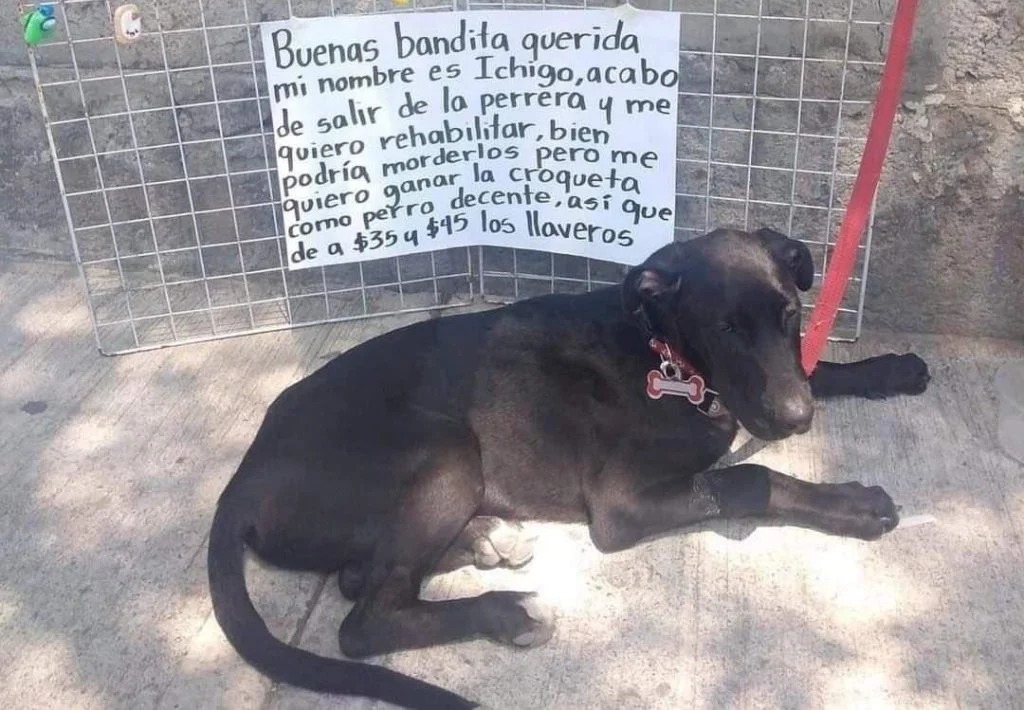 Buenas bandita querida
mi nombre es Ichigo, acabo
de salir de la perrera y me
quiero rehabilitar, bien
podría morderlos pero me
quiero ganar la croqueta
como perro decente, así que
de a $35 y $45 los llaveros